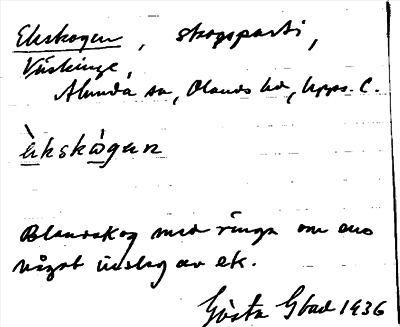 Ekskogen, skogsparti,
Väskinge,
Alunda sn, Olands hd, Upps. l.
èkskògen
Blandskog med ringa om ens
något inslag av ek.
Gösta 1936